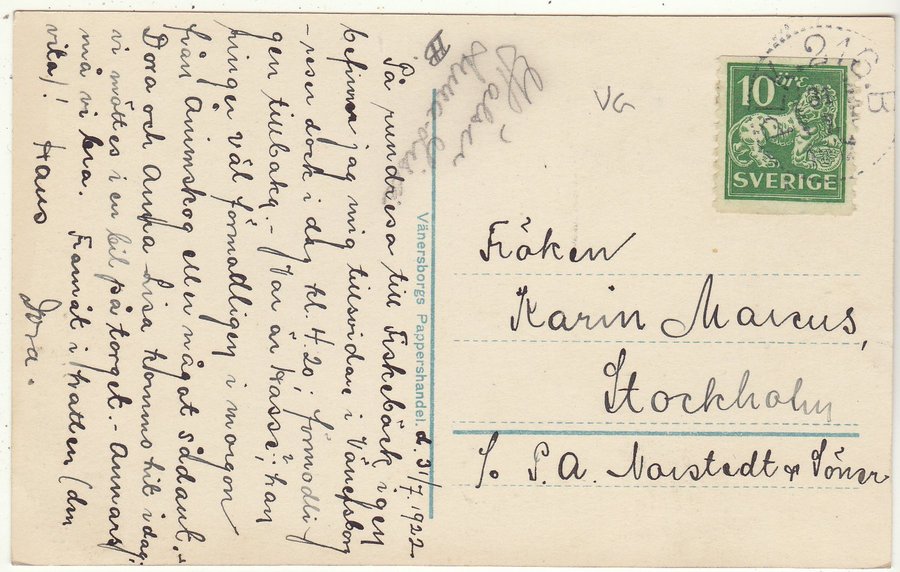 d. 31/7. 1922.
På rundresa till Fiskebäck igen
befinner jag mig tillsvidare i Vänersborg
- reser dock i dag kl. 4.20, förmodli
gen tillbaka. - Var är Hasse; han
ringer väl förmodligen i morgon
från Ånimskog eller något sådant. -
Dora och Anna Lisa kommo hit i dag;
vi möttes i en bil på torget. - Annars
må vi bra. Framåt i hatten (den
vita)! Hans
Dora.
Hälsa
VG
Vänersborgs Pappershandel.
10 ÖRE
SVERIGE
216 B
Fröken
Karin Marcus,
Stockholm
c/o P. A. Norstedt & Söner